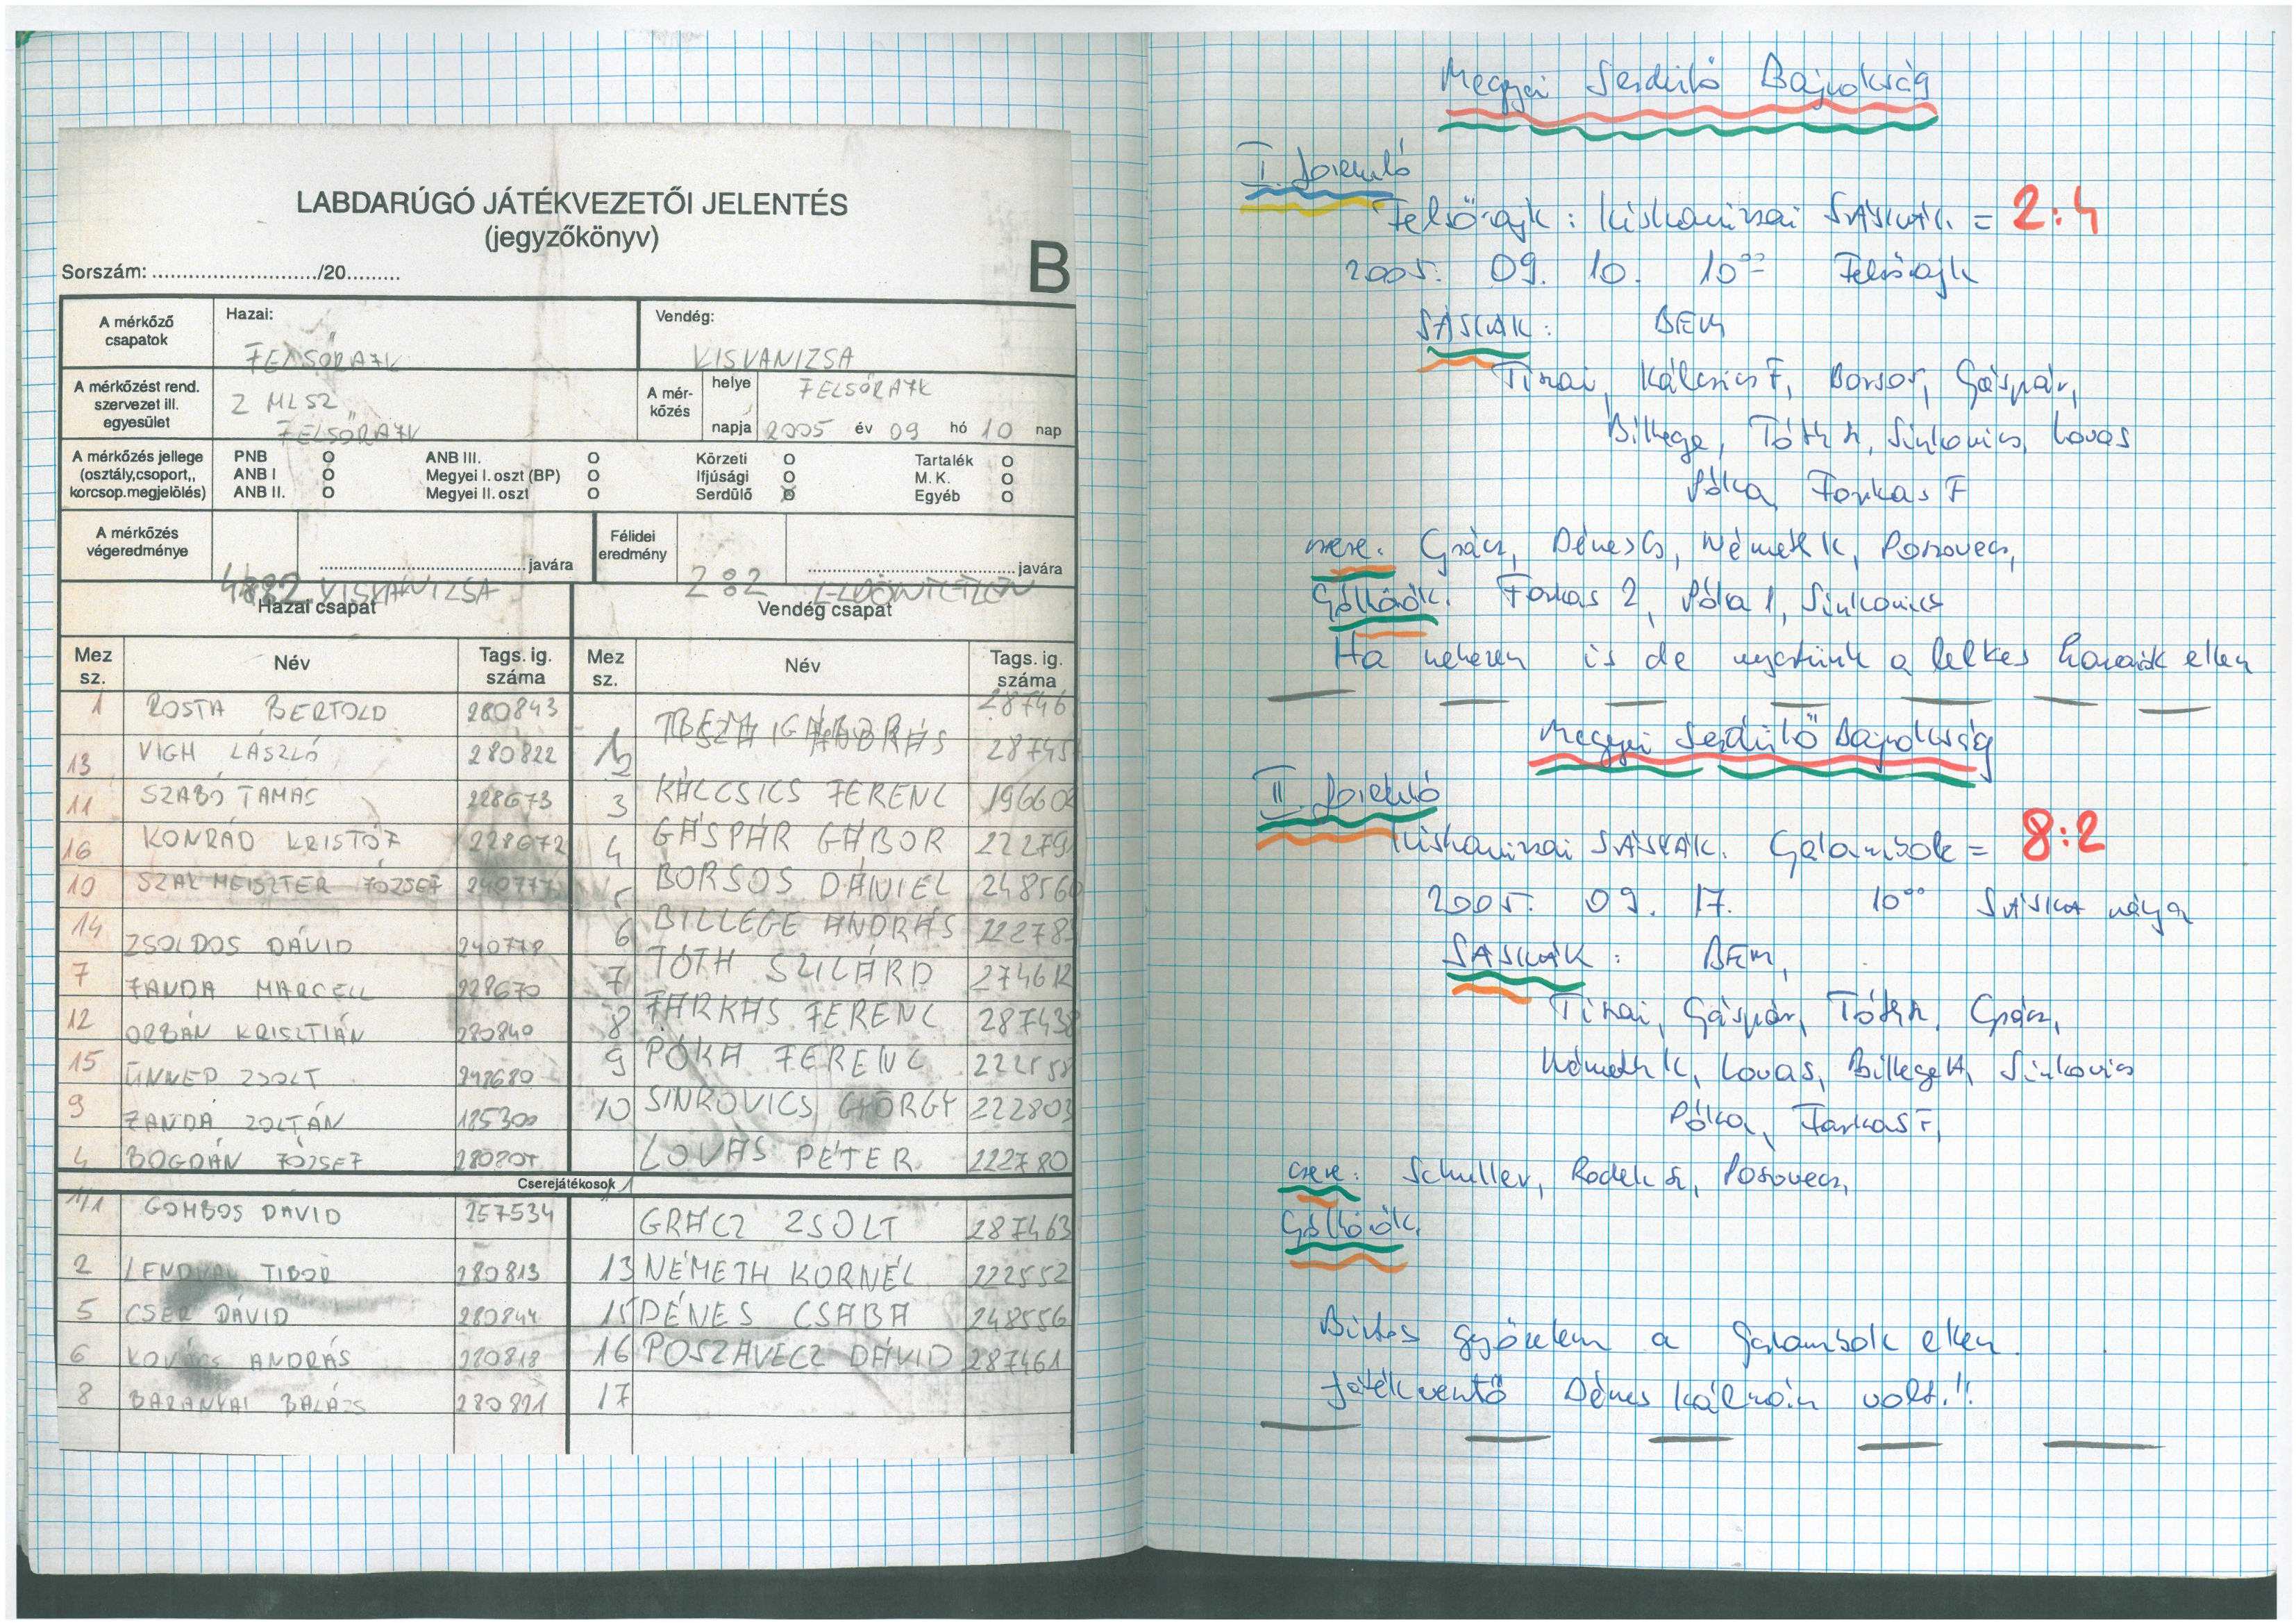 LABDARÚGÓ JÁTÉKVEZETŐI JELENTÉS
(jegyzőkönyv)
B
Sorszám: ........................../20.........
A mérkőző csapatok
Hazai: FELSŐRAJK
Vendég: KISKANIZSA
A mérkőzést rend. szervezet ill. egyesület
Z MLSZ
FELSŐRAJK
A mérkőzés helye FELSŐRAJK
napja 2005 év 09 hó 10 nap
A mérkőzés jellege (osztály,csoport,, korcsop.megjelölés)
PNB O ANB III. O Körzeti O Tartalék O
ANB I O Megyei I. oszt (BP) O Ifjúsági O M. K. O
ANB II. O Megyei II. oszt O Serdülő O Egyéb O
A mérkőzés végeredménye
KISKANIZSA javára
Félidei eredmény 2:2 javára
Hazai csapat Vendég csapat
Mez sz. Név Tags. ig. száma Mez sz. Név Tags. ig. száma
1 ROSTA BERTOLD 280843 28746
13 VIGH LÁSZLÓ 280822 287457
11 SZABÓ TAMÁS 228673 3 KÁLCSICS FERENC 19660
16 KONRÁD KRISTÓF 228672 4 GÁSPÁR GÁBOR 22279
10 SZALMEISZTER JÓZSEF 5 BORSOS DÁNIEL 248560
14 ZSOLDOS DÁVID 6 BILLEGE ANDRÁS 22278
7 JANDA MARCELL 228670 7 TÓTH SZILÁRD 274612
12 ORBÁN KRISZTIÁN 280840 8 FARKAS FERENC 287438
15 ÜNNEP ZSOLT 9 PÓKA FERENC 222558
9 JANDA ZOLTÁN 185300 10 SINKOVICS GYÖRGY 222803
4 BOGDÁN JÓZSEF LOVAS PÉTER 222780
Cserejátékosok
1/1 GOMBOS DÁVID 257534 GRÁCZ ZSOLT 287463
2 LENDVAI TIBOR 280813 13 NÉMETH KORNÉL 222552
5 CSER DÁVID 280844 15 DÉNES CSABA 248556
6 KOVÁCS ANDRÁS 280818 16 POSZAVECZ DÁVID 287461
8 BARANYAI BALÁZS 280821 17
Megyei Serdülő Bajnokság
I. forduló
Felsőrajk : Kiskanizsai SÁSKÁK = 2:4
2005. 09. 10. 10⁰⁰ Felsőrajk
SÁSKÁK: BEM
Tizai, Kálcsics F, Borsos, Gáspár,
Billege, Tóth, Sinkovics, Lovas
Póka, Farkas F
csere: Grácz, Dénes Cs, Németh K, Poszovecz,
Góllövők: Farkas 2, Póka 1, Sinkovics
Ha nehezen is de nyertünk a lelkes hazaiak ellen
Megyei Serdülő Bajnokság
II. forduló
Kiskanizsai SÁSKÁK : Galambok = 8:2
2005. 09. 17. 10⁰⁰ SÁSKA pálya
SÁSKÁK: BEM,
Tizai, Gáspár, Tóth, Grácz,
Németh K, Lovas, Billege A, Sinkovics
Póka, Farkas F,
csere: Schuller, Rodek, Poszovecz,
Góllövők:
Biztos győzelem a Galambok ellen.
Játékvezető Dénes Kálmán volt.!!